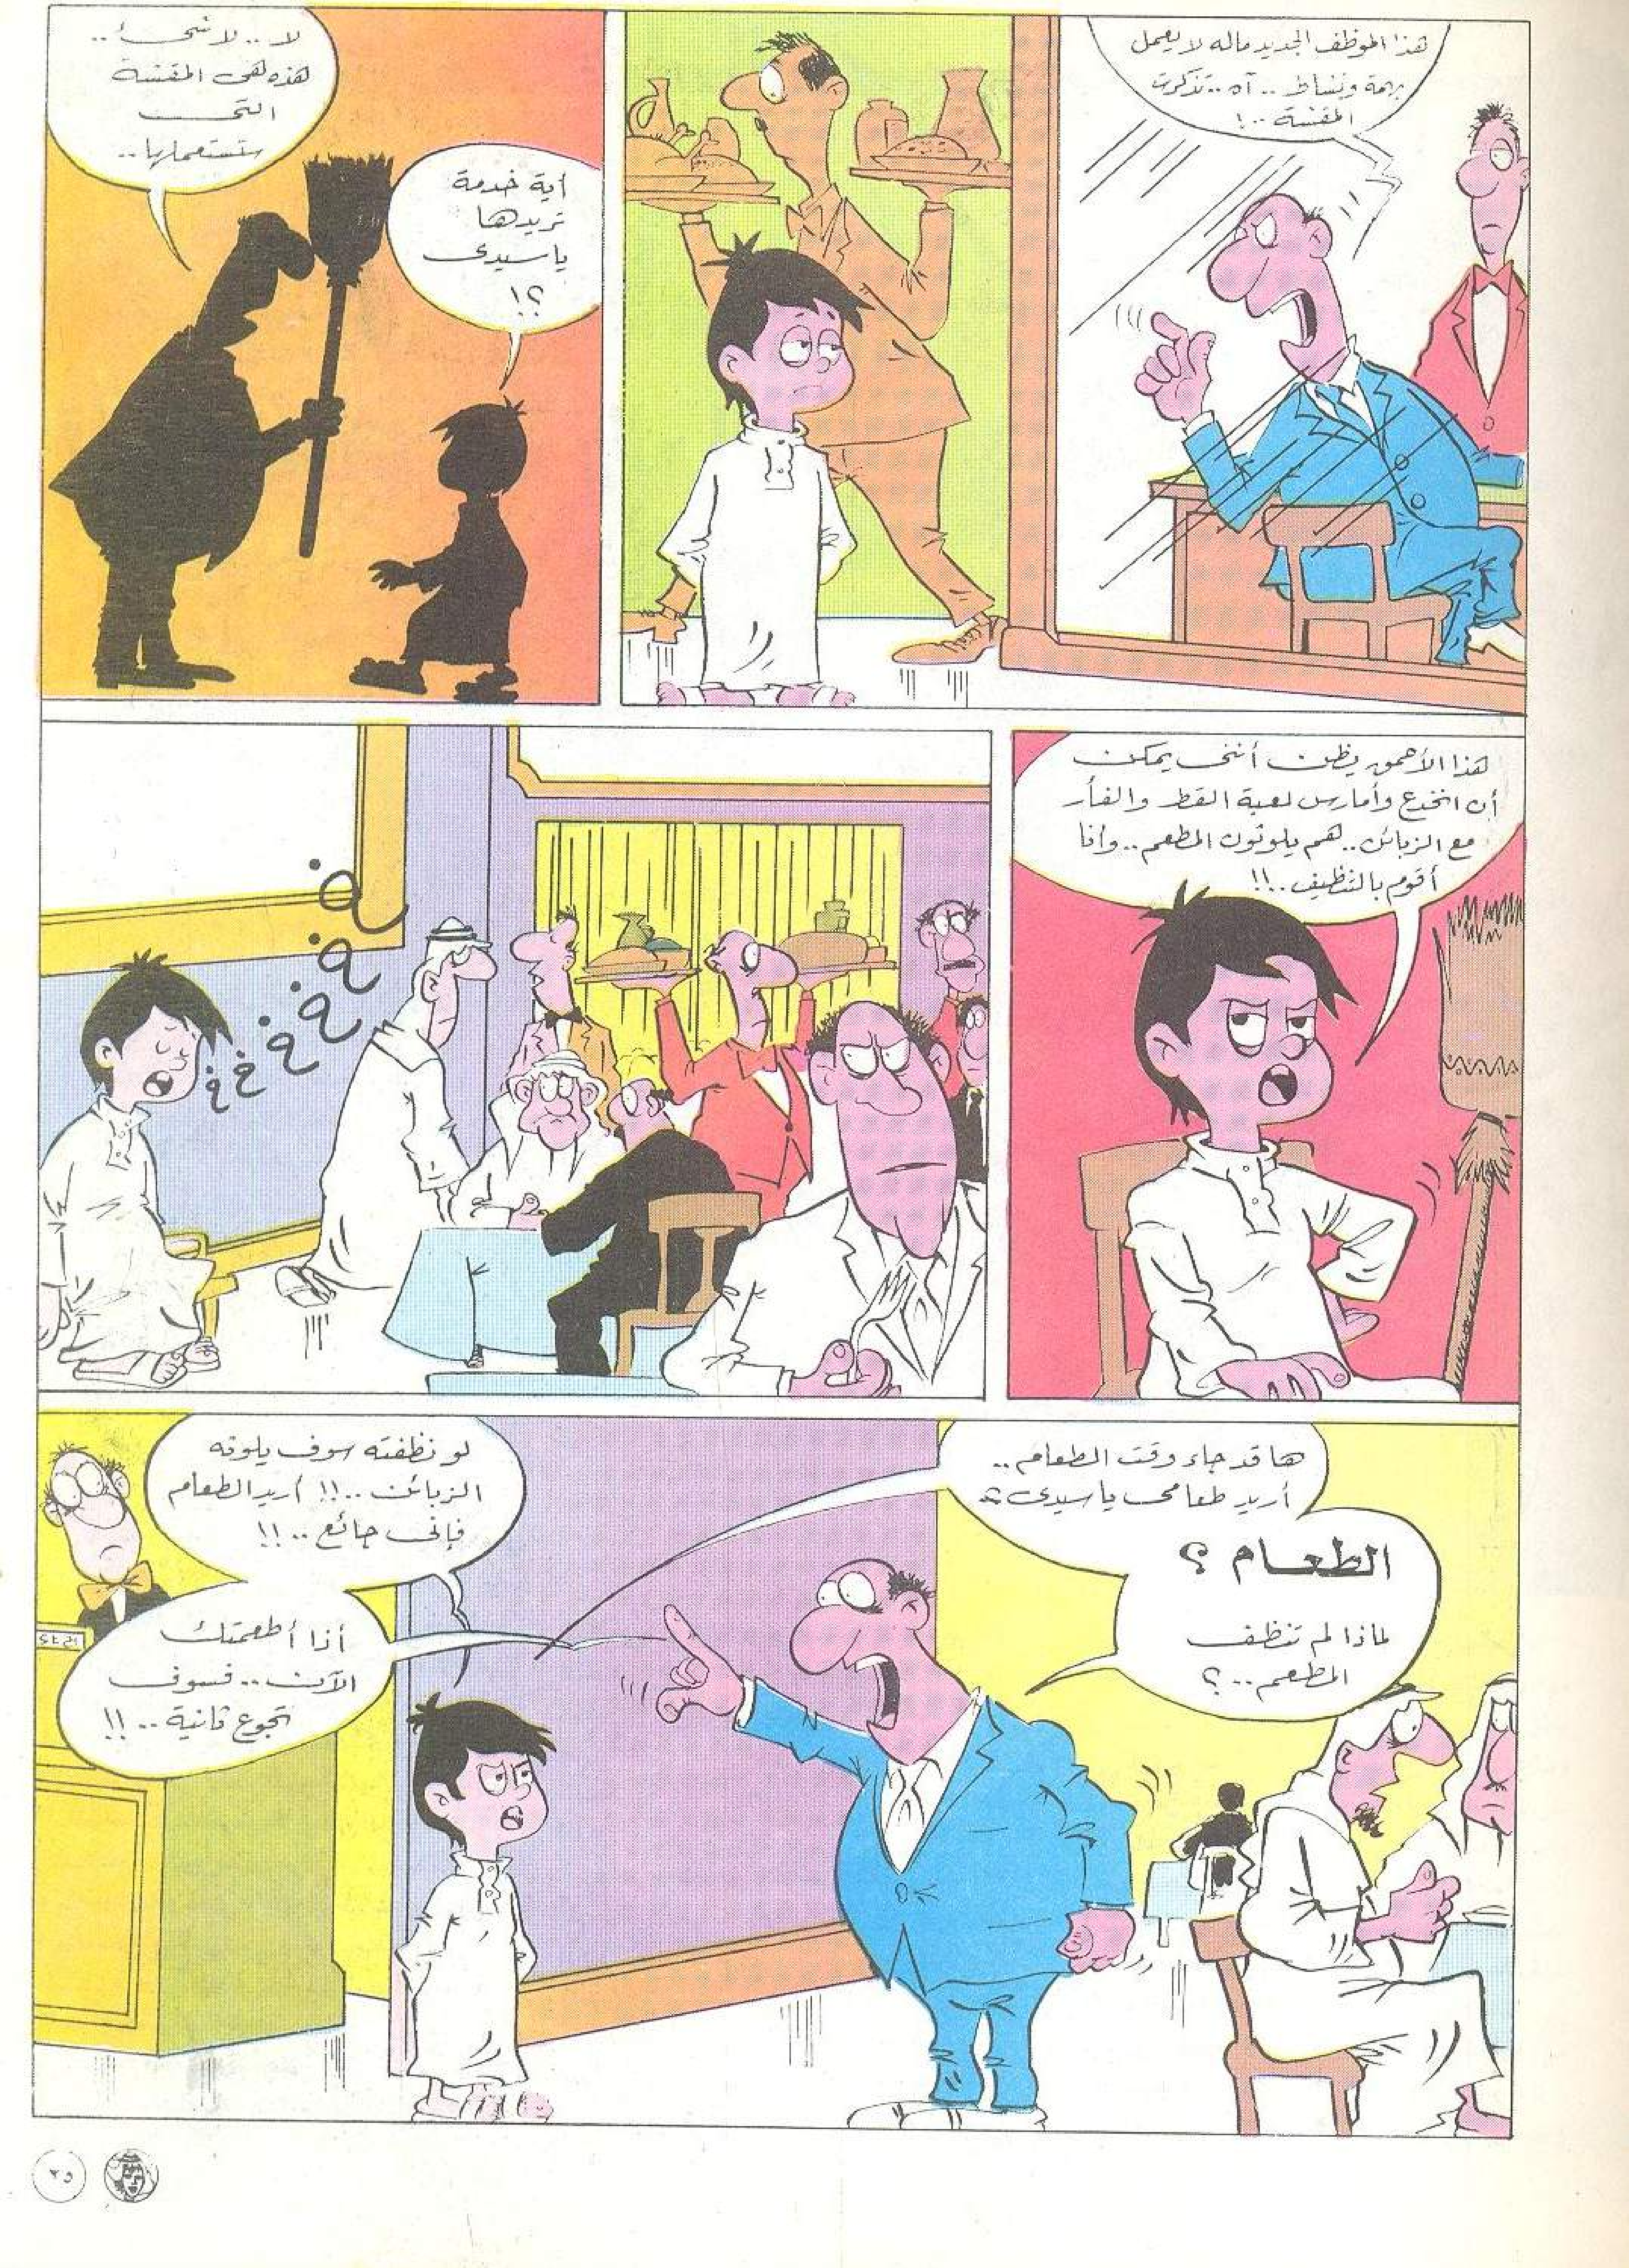 هذا الموظف الجديد ماله لا يعمل
بهمة ونشاط .. آه .. تذكرت
المقشة ..!
أية خدمة
تريدها
ياسيدى
؟!
لا .. لا شىء ..
هذه هى المقشة
التى
ستستعملها ..
هذا الأحمق يظن أننى يمكن
أن انخدع وأمارس لعبة القط والفأر
مع الزبائن .. هم يلوثون المطعم .. وأنا
أقوم بالتنظيف ..!!
خ خ خ خ خ خ
ها قد جاء وقت الطعام ..
أريد طعامى ياسيدى
الطعام ؟
لماذا لم تنظف
المطعم .. ؟
لو نظفته سوف يلوثه
الزبائن ..!! أريد الطعام
فإنى جائع ..!!
أذا أطعمتك
الآن .. فسوف
تجوع ثانية ..!!
٣٥